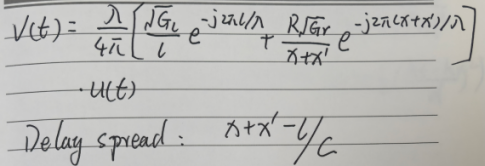 V(t) = λ/4π [ √G_l/l e^{-j2πl/λ} + R√G_r/x+x' e^{-j2π(x+x')/λ} ]
· u(t)
Delay spread : x+x'-l/c